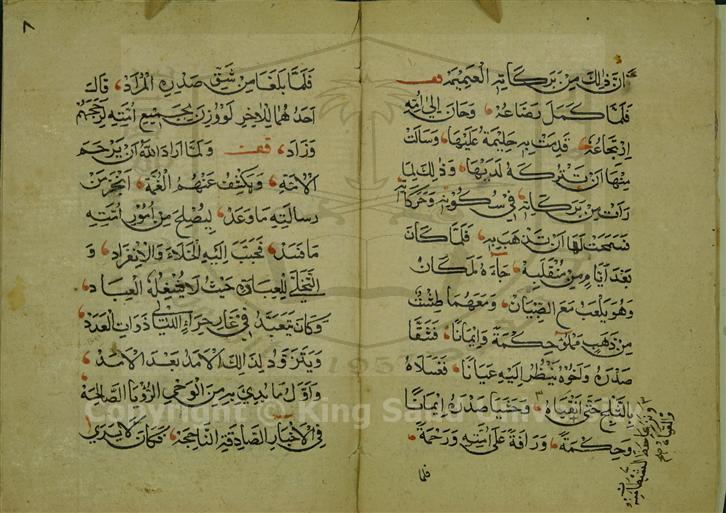 ان ذلك من بركاته العميمه قف
فلما كمل رضاعه وحان الى امه
ارتجاعه قدمت به حليمة عليها وسالت
منها ان تتركه لديها وذلك لما
رات من بركاته في سكونه وحركاته
فسمحت لها ان تذهب به فلما كان
بعد ايام من منقلبه جاءه ملكان
وهو يلعب مع الصبيان ومعهما طشت
من ذهب ملئ حكمة وايمانا فشقا
صدره واخوه ينظر اليه عيانا فغسلاه
بالثلج حتى انقياه وحشيا صدره ايمانا
وحكمة ورافة على امته ورحمة
فلما
فلما بلغا من شق صدره المراد قال
احدهما للاخر لو وزن بجميع امته لرجحهم
وزاد قف ولما اراد الله ان يرحم
الامه ويكشف عنهم الغمة انجز من
رسالته ما وعد ليصلح من امور امته
ما فسد فحبب اليه الخلاء والانفراد و
التخلي للعبادة حيث لا تشغله العباد
وكان يتعبد في غار حراء الليالي ذوات العدد
ويتزود لذلك الامد بعد الامد
واول ما بدي به من الوحي الرؤيا الصالحة
في الاخبار الصادقة الناجحة فكان لا يرى
٨